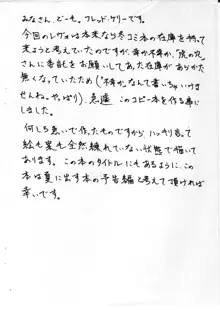 みなさん、どーも。フレッド・ケリーです。
今回のレヴォは本来なら冬コミ本の在庫を持って
来ようと考えていたのですが、幸か不幸か、“虎の穴”
さんに委託をお願いしてあった在庫があらかた
無くなっていたため（“不幸か”なんて書いちゃいけま
せんね。やっぱり）、急遽 このコピー本を作る事に
しました。
何しろ急いで作ったものですから、ハッキリ言って
絵も案も全然練れていない状態で描いて
おります。この本のタイトルにもあるように、この
本は夏に出す本の予告編と考えて頂ければ
幸いです。